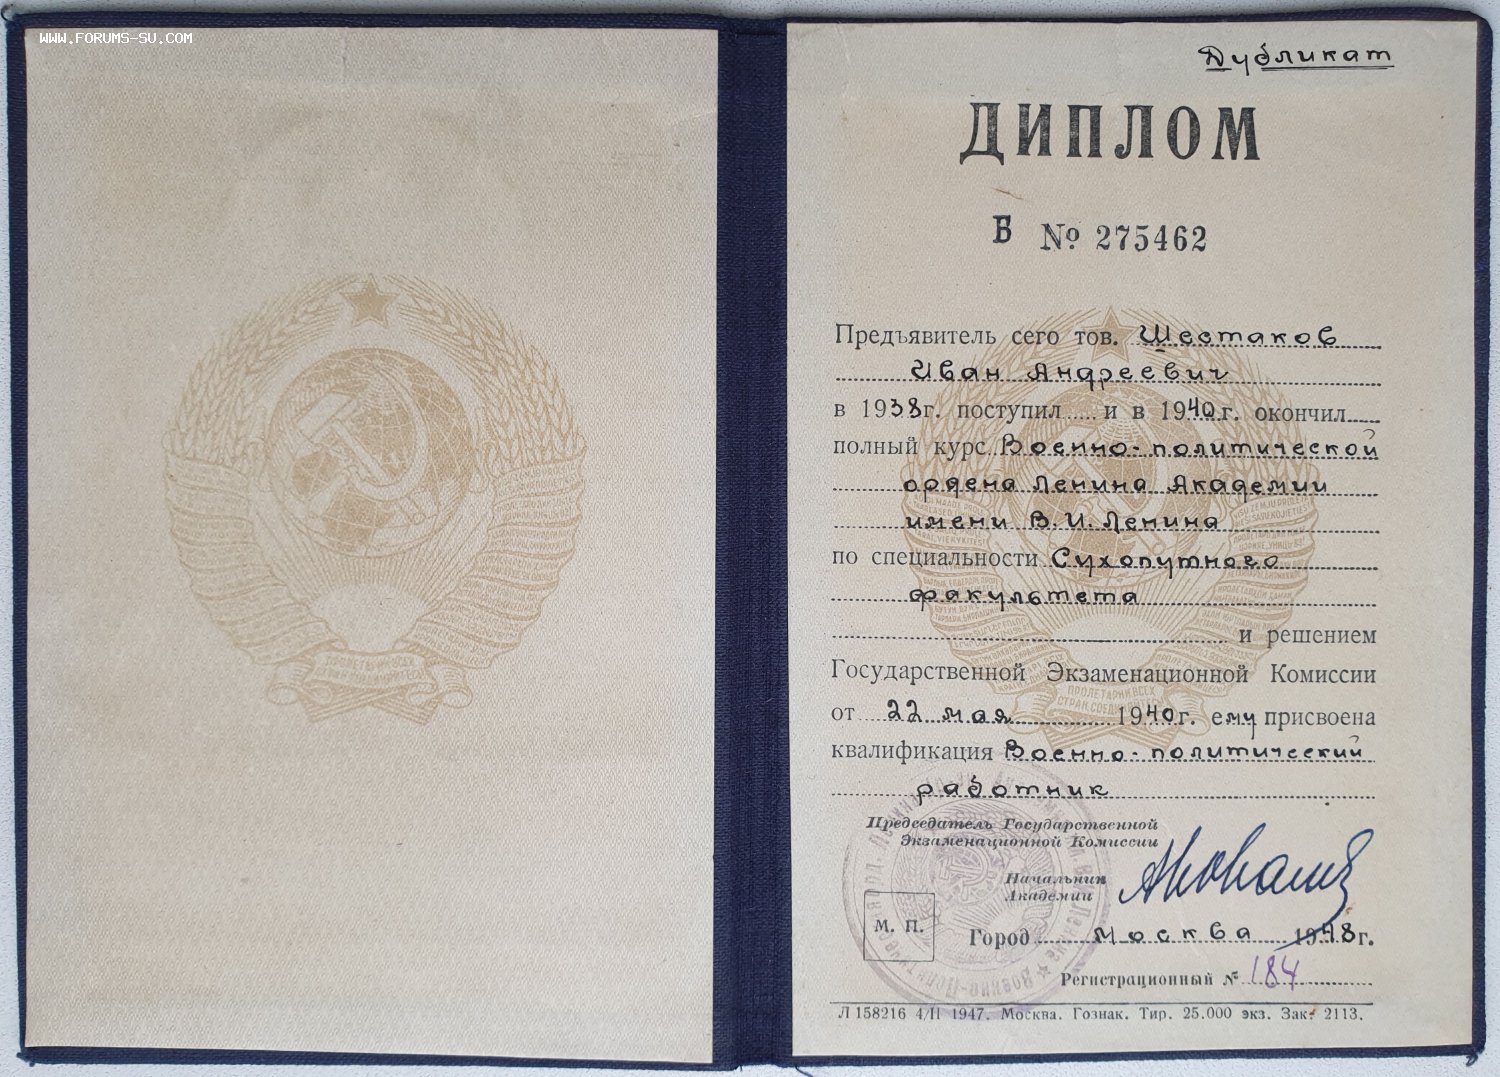 WWW.FORUMS-SU.COM
Дубликат
ДИПЛОМ
Б № 275462
Предъявитель сего тов. Шестаков
Иван Андреевич
в 1938г. поступил и в 1940г. окончил
полный курс Военно-политической
ордена Ленина Академии
имени В.И. Ленина
по специальности Сухопутного
факультета
и решением
Государственной Экзаменационной Комиссии
от 22 мая 1940г. ему присвоена
квалификация Военно-политический
работник
Председатель Государственной
Экзаменационной Комиссии
Начальник
Академии
М. П.
Город Москва 1948г.
Регистрационный № 184
Л 158216 4/II 1947. Москва. Гознак. Тир. 25.000 экз. Зак. 2113.
ПРОЛЕТАРИИ ВСЕХ